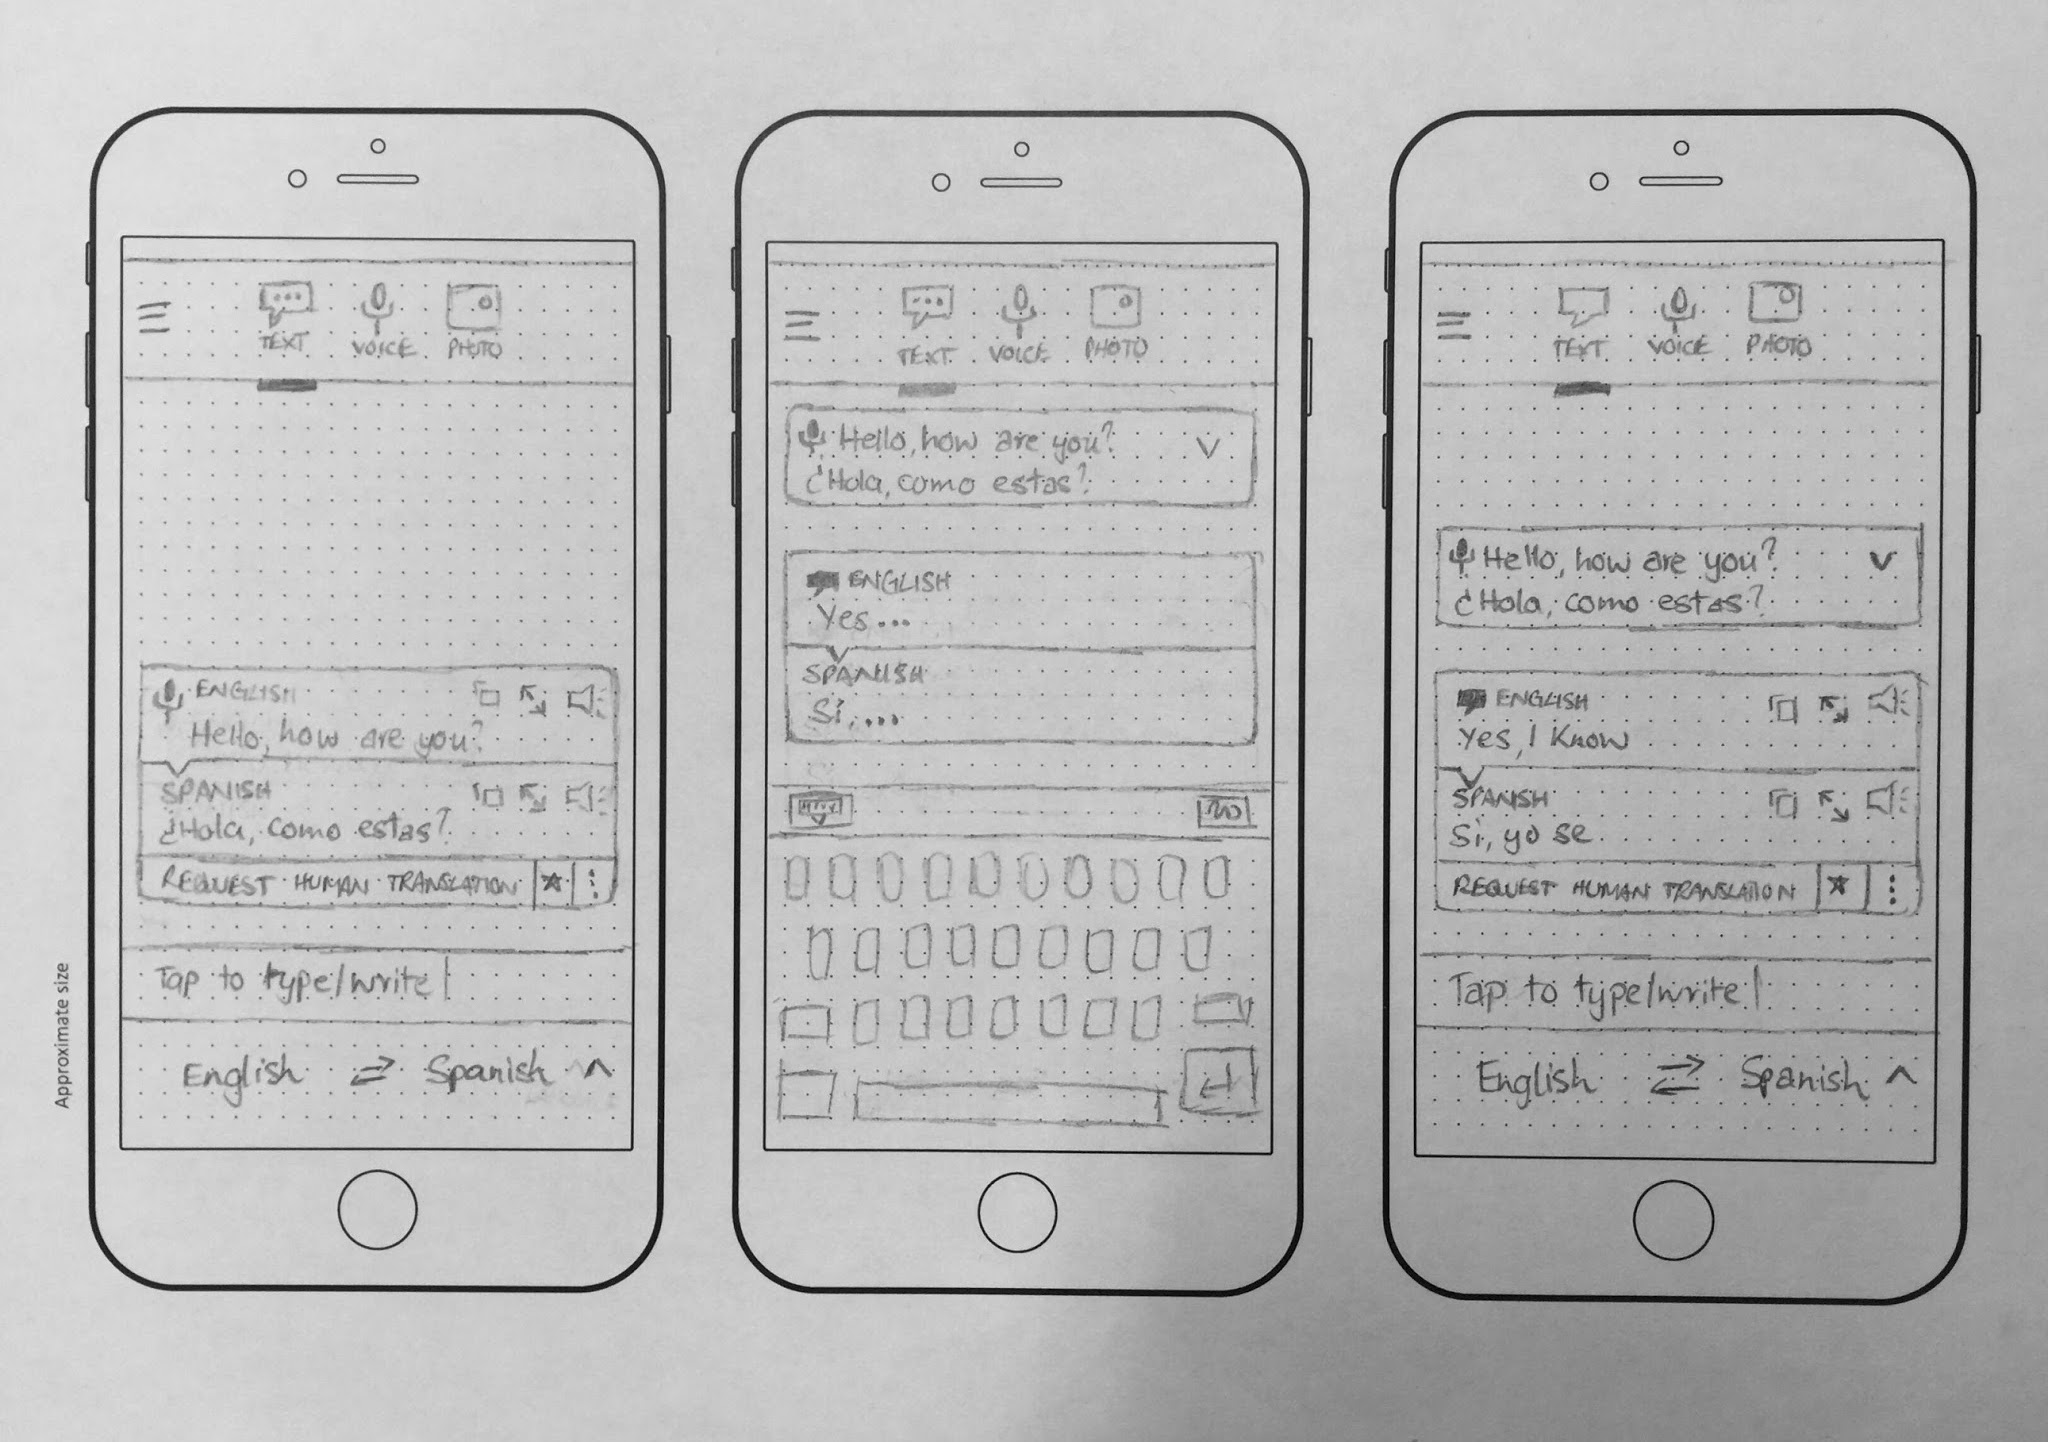 Approximate size
TEXT VOICE PHOTO
ENGLISH
Hello, how are you?
SPANISH
¿Hola, como estas?
REQUEST HUMAN TRANSLATION
Tap to type/write
English Spanish
TEXT VOICE PHOTO
Hello, how are you?
¿Hola, como estas?
ENGLISH
Yes...
SPANISH
Si,...
TEXT VOICE PHOTO
Hello, how are you?
¿Hola, como estas?
ENGLISH
Yes, I Know
SPANISH
Si, yo se
REQUEST HUMAN TRANSLATION
Tap to type/write
English Spanish